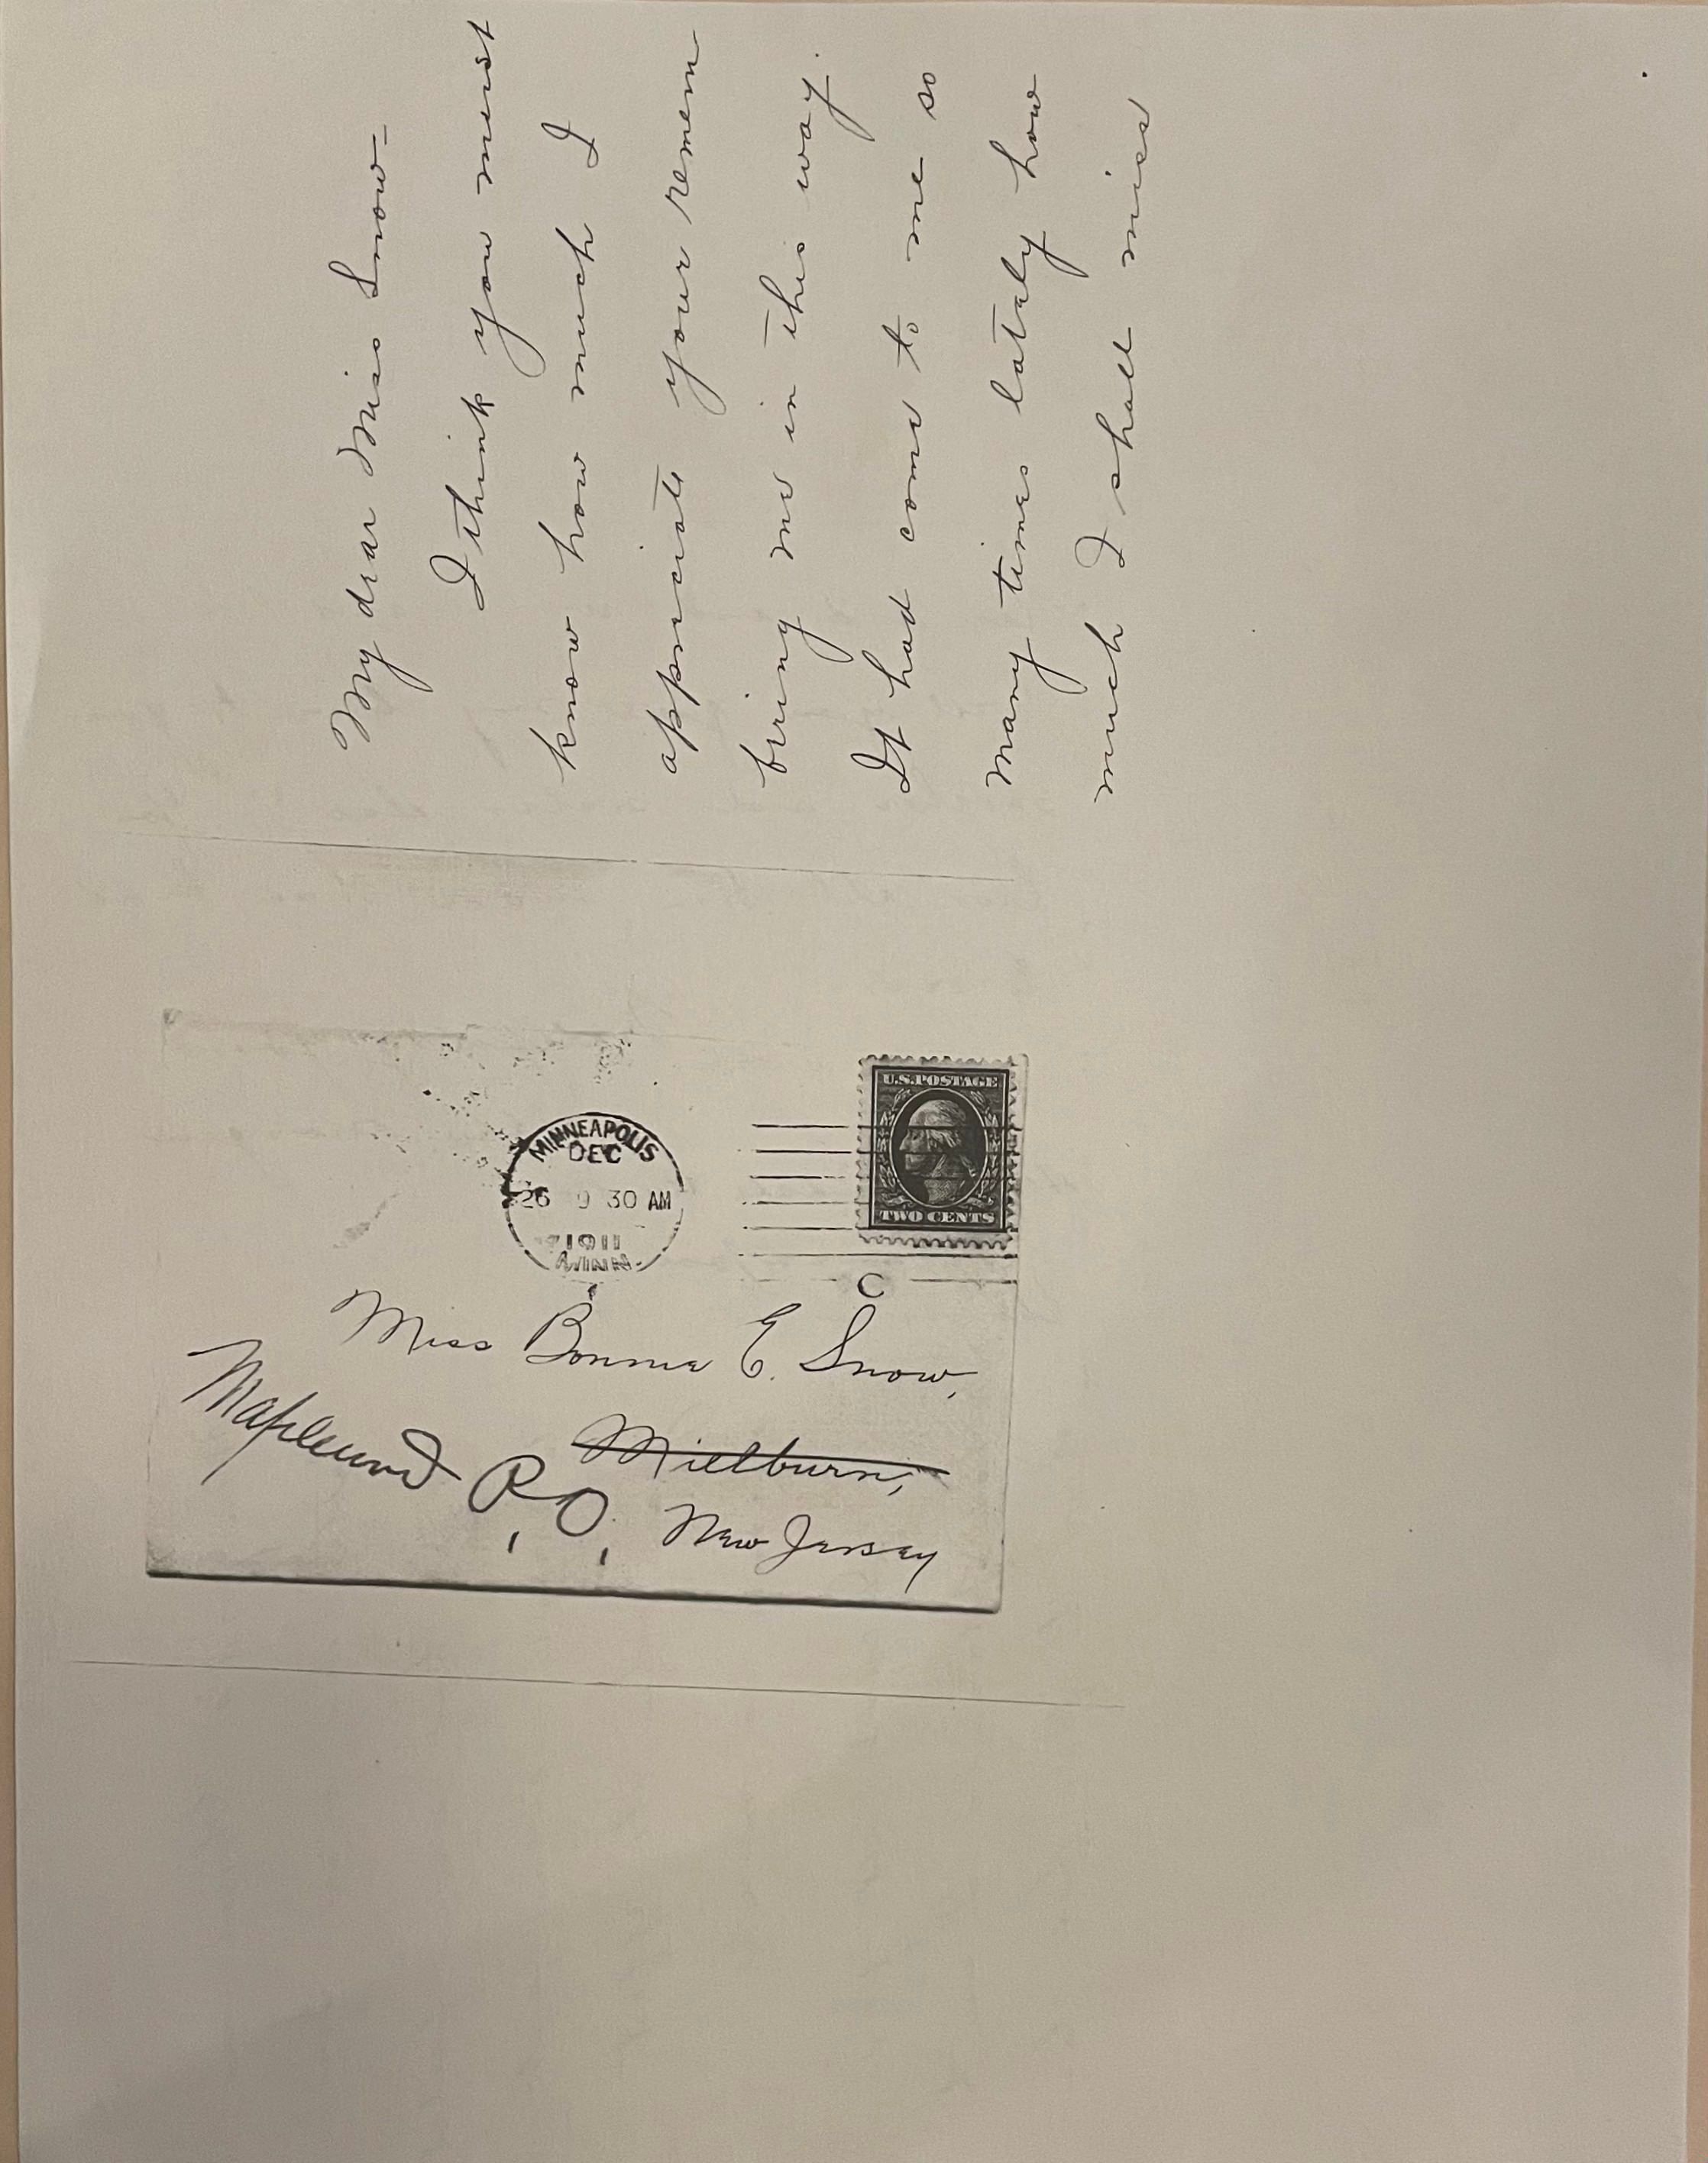 My dear Miss Snow-
I think you must
know how much I
appreciate your remem
bring me in this way.
It had come to me so
many times lately how
much I shall miss
MINNEAPOLIS
DEC
26 9 30 AM
1911
MINN.
U.S. POSTAGE
TWO CENTS
C
Miss Bonnie E. Snow,
Millburn,
Maplewood P.O.,
New Jersey